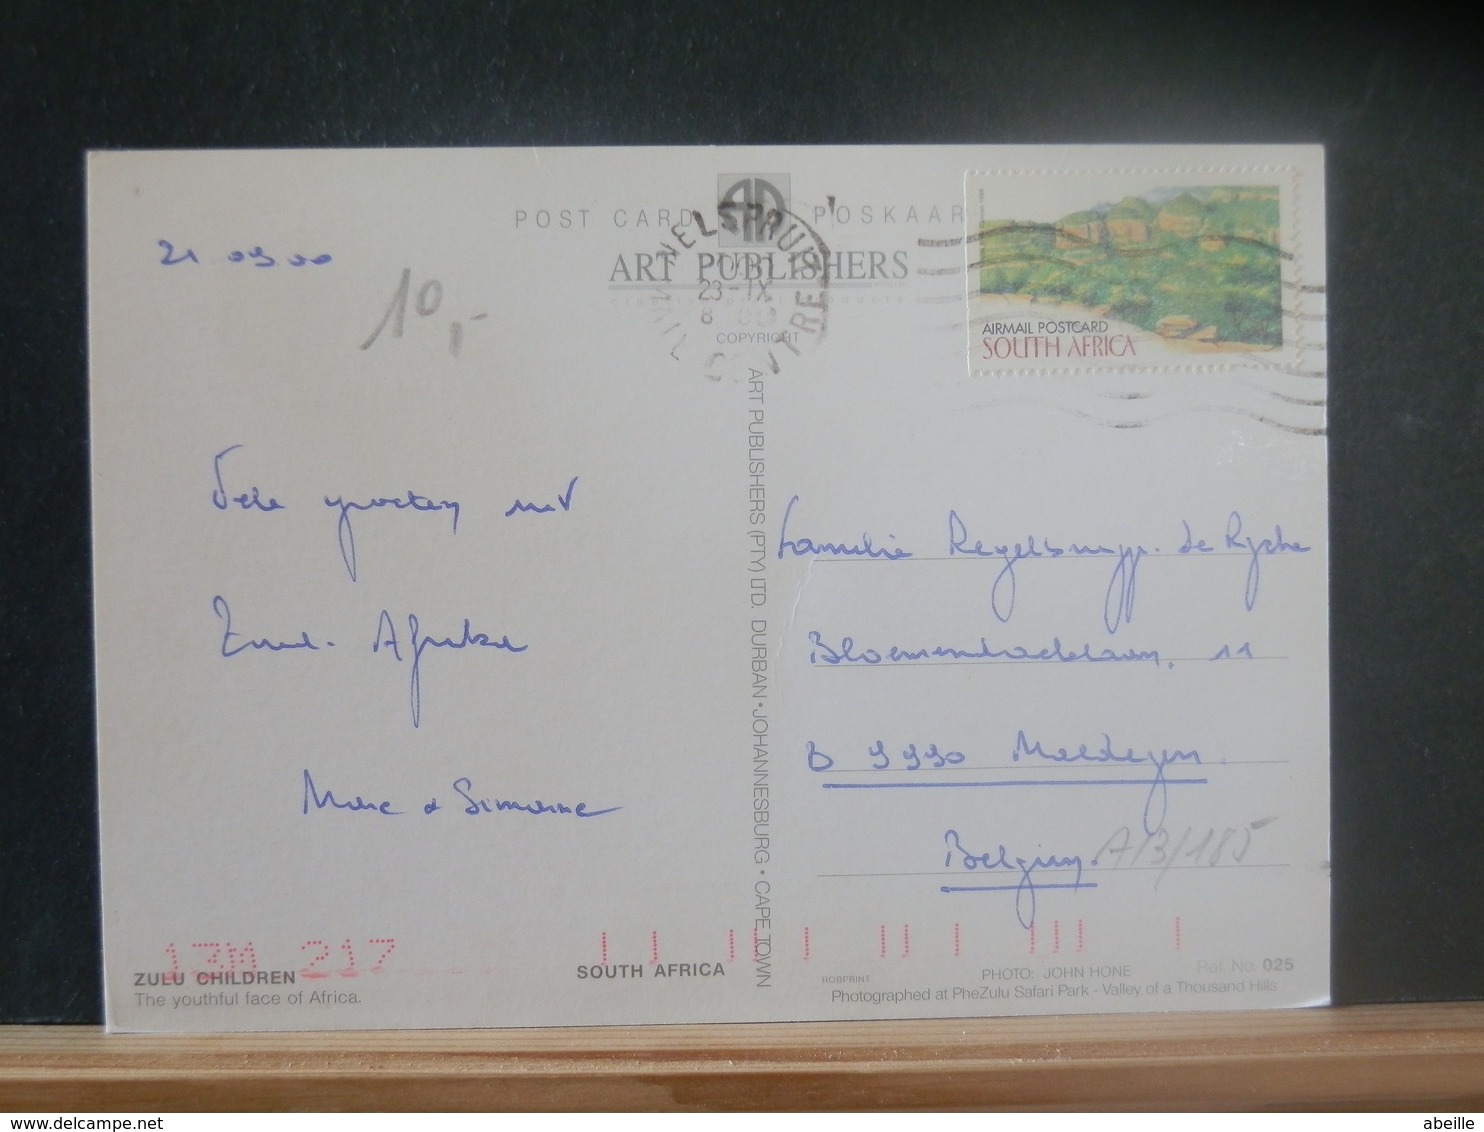 POST CARD POSKAAR
21.09.00
10,-
NELSPRUIT
23 -IX
8 00
MAIL CENTRE
ART PUBLISHERS
COPYRIGHT
AIRMAIL POSTCARD
SOUTH AFRICA
ART PUBLISHERS (PTY) LTD. DURBAN • JOHANNESBURG • CAPE TOWN
Vele groeten uit
Zuid-Afrika
Marc & Simonne
Familie Regelbrugge. De Rycke
Bloemendaelelaan, 11
B 9990 Maldegem
Belgium.
A13/185
13M 217
ZULU CHILDREN
The youthful face of Africa.
SOUTH AFRICA
ROBPRINT
PHOTO: JOHN HONE
Ref. No. 025
Photographed at PheZulu Safari Park - Valley of a Thousand Hills
abeille